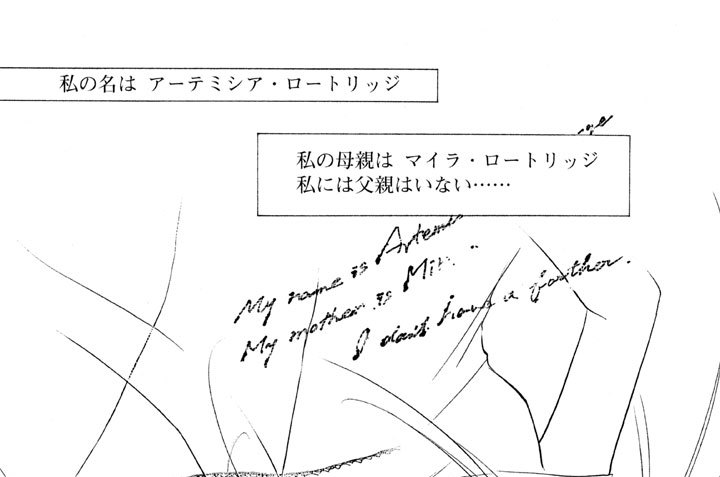 私の名は アーテミシア・ロートリッジ
私の母親は マイラ・ロートリッジ
私には父親はいない……
My name is Artemis
My mother is
I don't have a farther.